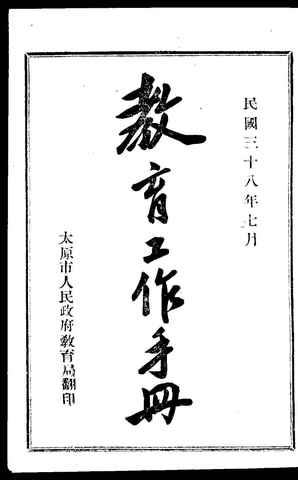 民國三十八年七月
教育工作手冊
太原市人民政府教育局翻印